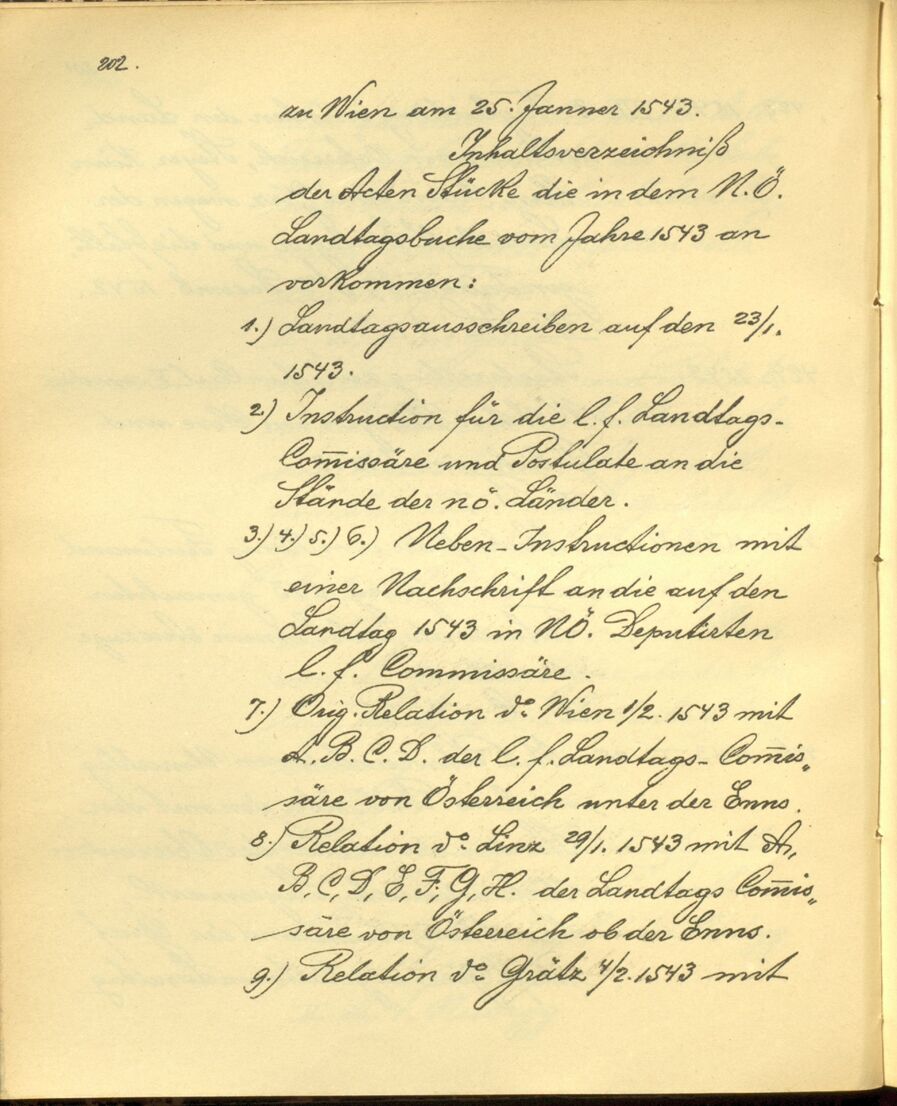 202.
zu Wien am 25. Janner 1543.
Inhaltsverzeichniß
der Acten Stücke die in dem N.Ö.
Landtagsbuche vom Jahre 1543 an
vorkommen:
1.) Landtagsausschreiben auf den 23/1.
1543.
2.) Instruction für die l. f. Landtags-
Com̅issäre und Postulate an die
Stände der nö. Länder.
3.) 4.) 5.) 6.) Neben-Instructionen mit
einer Nachschrift an die auf den
Landtag 1543 in NÖ. Deputirten
l. f. Commissäre.
7.) Orig. Relation do. Wien 1/2. 1543 mit
A. B. C. D. der l. f. Landtags- Com̅is„
säre von Österreich unter der Enns.
8.) Relation do. Linz 29/1. 1543 mit A,
B, C, D, E, F, G, H. der Landtags Com̅is„
säre von Österreich ob der Enns.
9.) Relation do. Grätz 4/2. 1543 mit